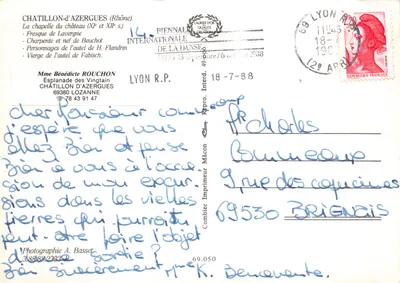 CHATILLON-d'AZERGUES (Rhône)
La chapelle du château (XIe et XIIe s.)
- Fresque de Lavergne
- Charpente et nef de Bauchot
- Personnages de l'autel de H. Flandrin
- Vierge de l'autel de Fabisch.
Mme Bénédicte ROUCHON
Esplanade des Vingtain
CHÂTILLON D'AZERGUES
69380 LOZANNE
78 43 91 47
14.
BIENNALE
INTERNATIONALE
DE LA DANSE
LYON R.P.
18-7-88
69 LYON R.P.
18-7
(2e ARR)
cher Monsieur
j'espère que vous
allez bien et pense
bien à vous à l'occa
sion de mon excur
sions dans les vielles
pierres qui pourrait
peut-être faire l'objet
sortie ?
bien sincèrement K. Benavente.
Mr Charles
9 rue des capucines
69530 BRIGNAIS
Photographie A. Basset
69.050
Combier Imprimeur Mâcon
Repro. Interd.